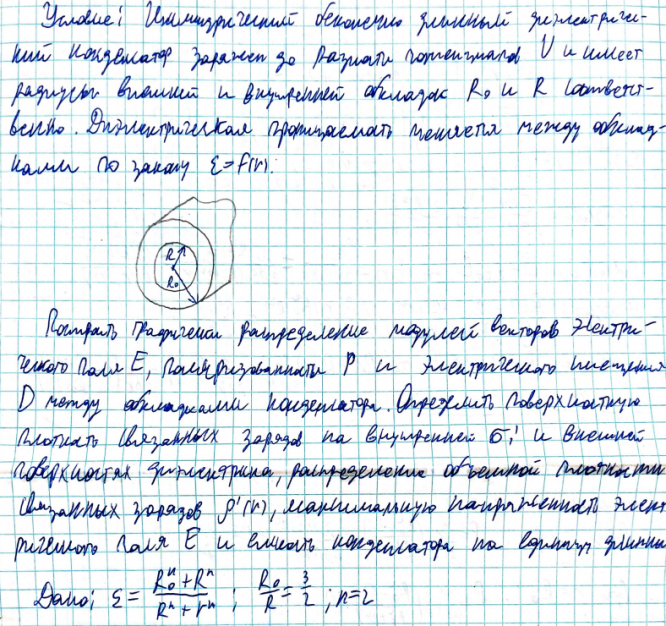 Условие: Цилиндрический бесконечно длинный диэлектричес-
кий конденсатор заряжен до разности потенциалов U и имеет
радиусы внешней и внутренней обкладок R₀ и R соответст-
венно. Диэлектрическая проницаемость меняется между обклад-
ками по закону ε=f(r).
R
R₀
Построить графически распределение модулей векторов электри-
ческого поля E, поляризованности P и электрического смещения
D между обкладками конденсатора. Определить поверхностную
плотность связанных зарядов на внутренней σ₁' и внешней
поверхностях диэлектрика, распределение объемной плотности
связанных зарядов ρ'(r), максимальную напряженность элект
рического поля E и емкость конденсатора на единицу длинны
Дано: ε = (R₀ⁿ + Rⁿ)/(Rⁿ + rⁿ) ; R₀/R = 3/2 ; n=2